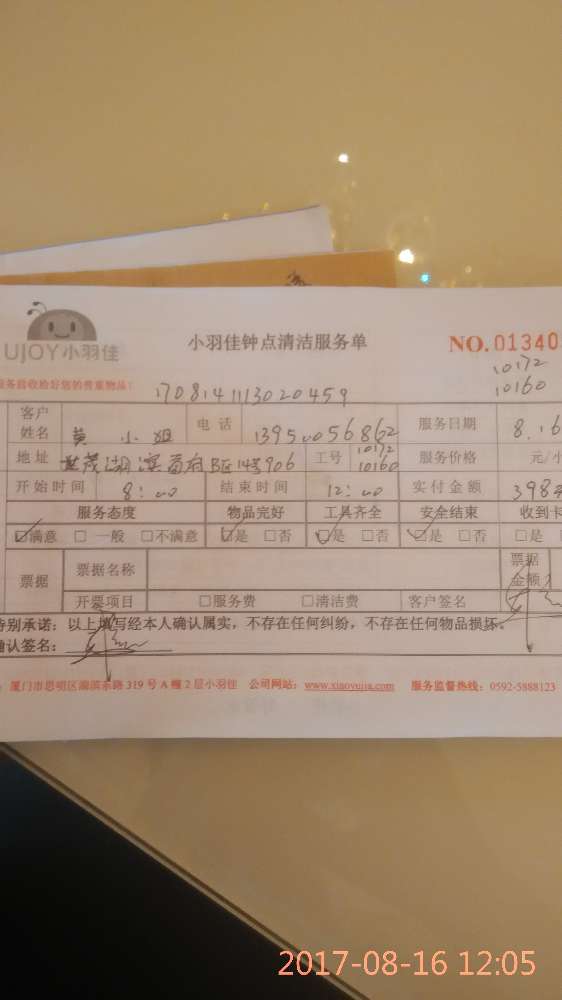 UJOY小羽佳
小羽佳钟点清洁服务单
NO.01340
10172
10160
务员收检好您的贵重物品！
170814113020459
客户姓名 黄小姐 电话 13950056862 服务日期 8.16
地址 世茂湖滨首府B区14号906 工号 10172 10160 服务价格 元/小
开始时间 8:00 结束时间 12:00 实付金额 398
服务态度 物品完好 工具齐全 安全结束 收到卡
☑满意 □一般 □不满意 ☑是 □否 ☑是 □否 ☑是 □否 □是
票据 票据名称 票据金额
开票项目 □服务费 □清洁费 客户签名
特别承诺：以上填写经本人确认属实，不存在任何纠纷，不存在任何物品损坏。
确认签名：
厦门市思明区湖滨东路319号A幢2层小羽佳 公司网站：www.xiaoyujia.com 服务监督热线：0592-5888123
2017-08-16 12:05